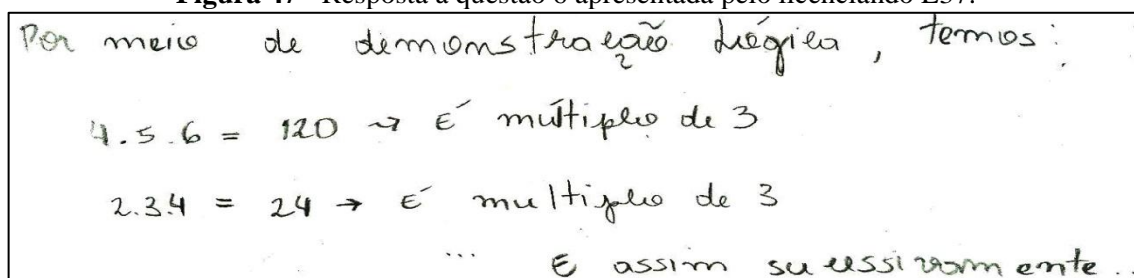 Figura 47 - Resposta à questão 6 apresentada pelo licenciando L37.
Por meio de demonstração lógica, temos:
4.5.6 = 120 → É múltiplo de 3
2.3.4 = 24 → É multiplo de 3
... E assim sucessivamente.